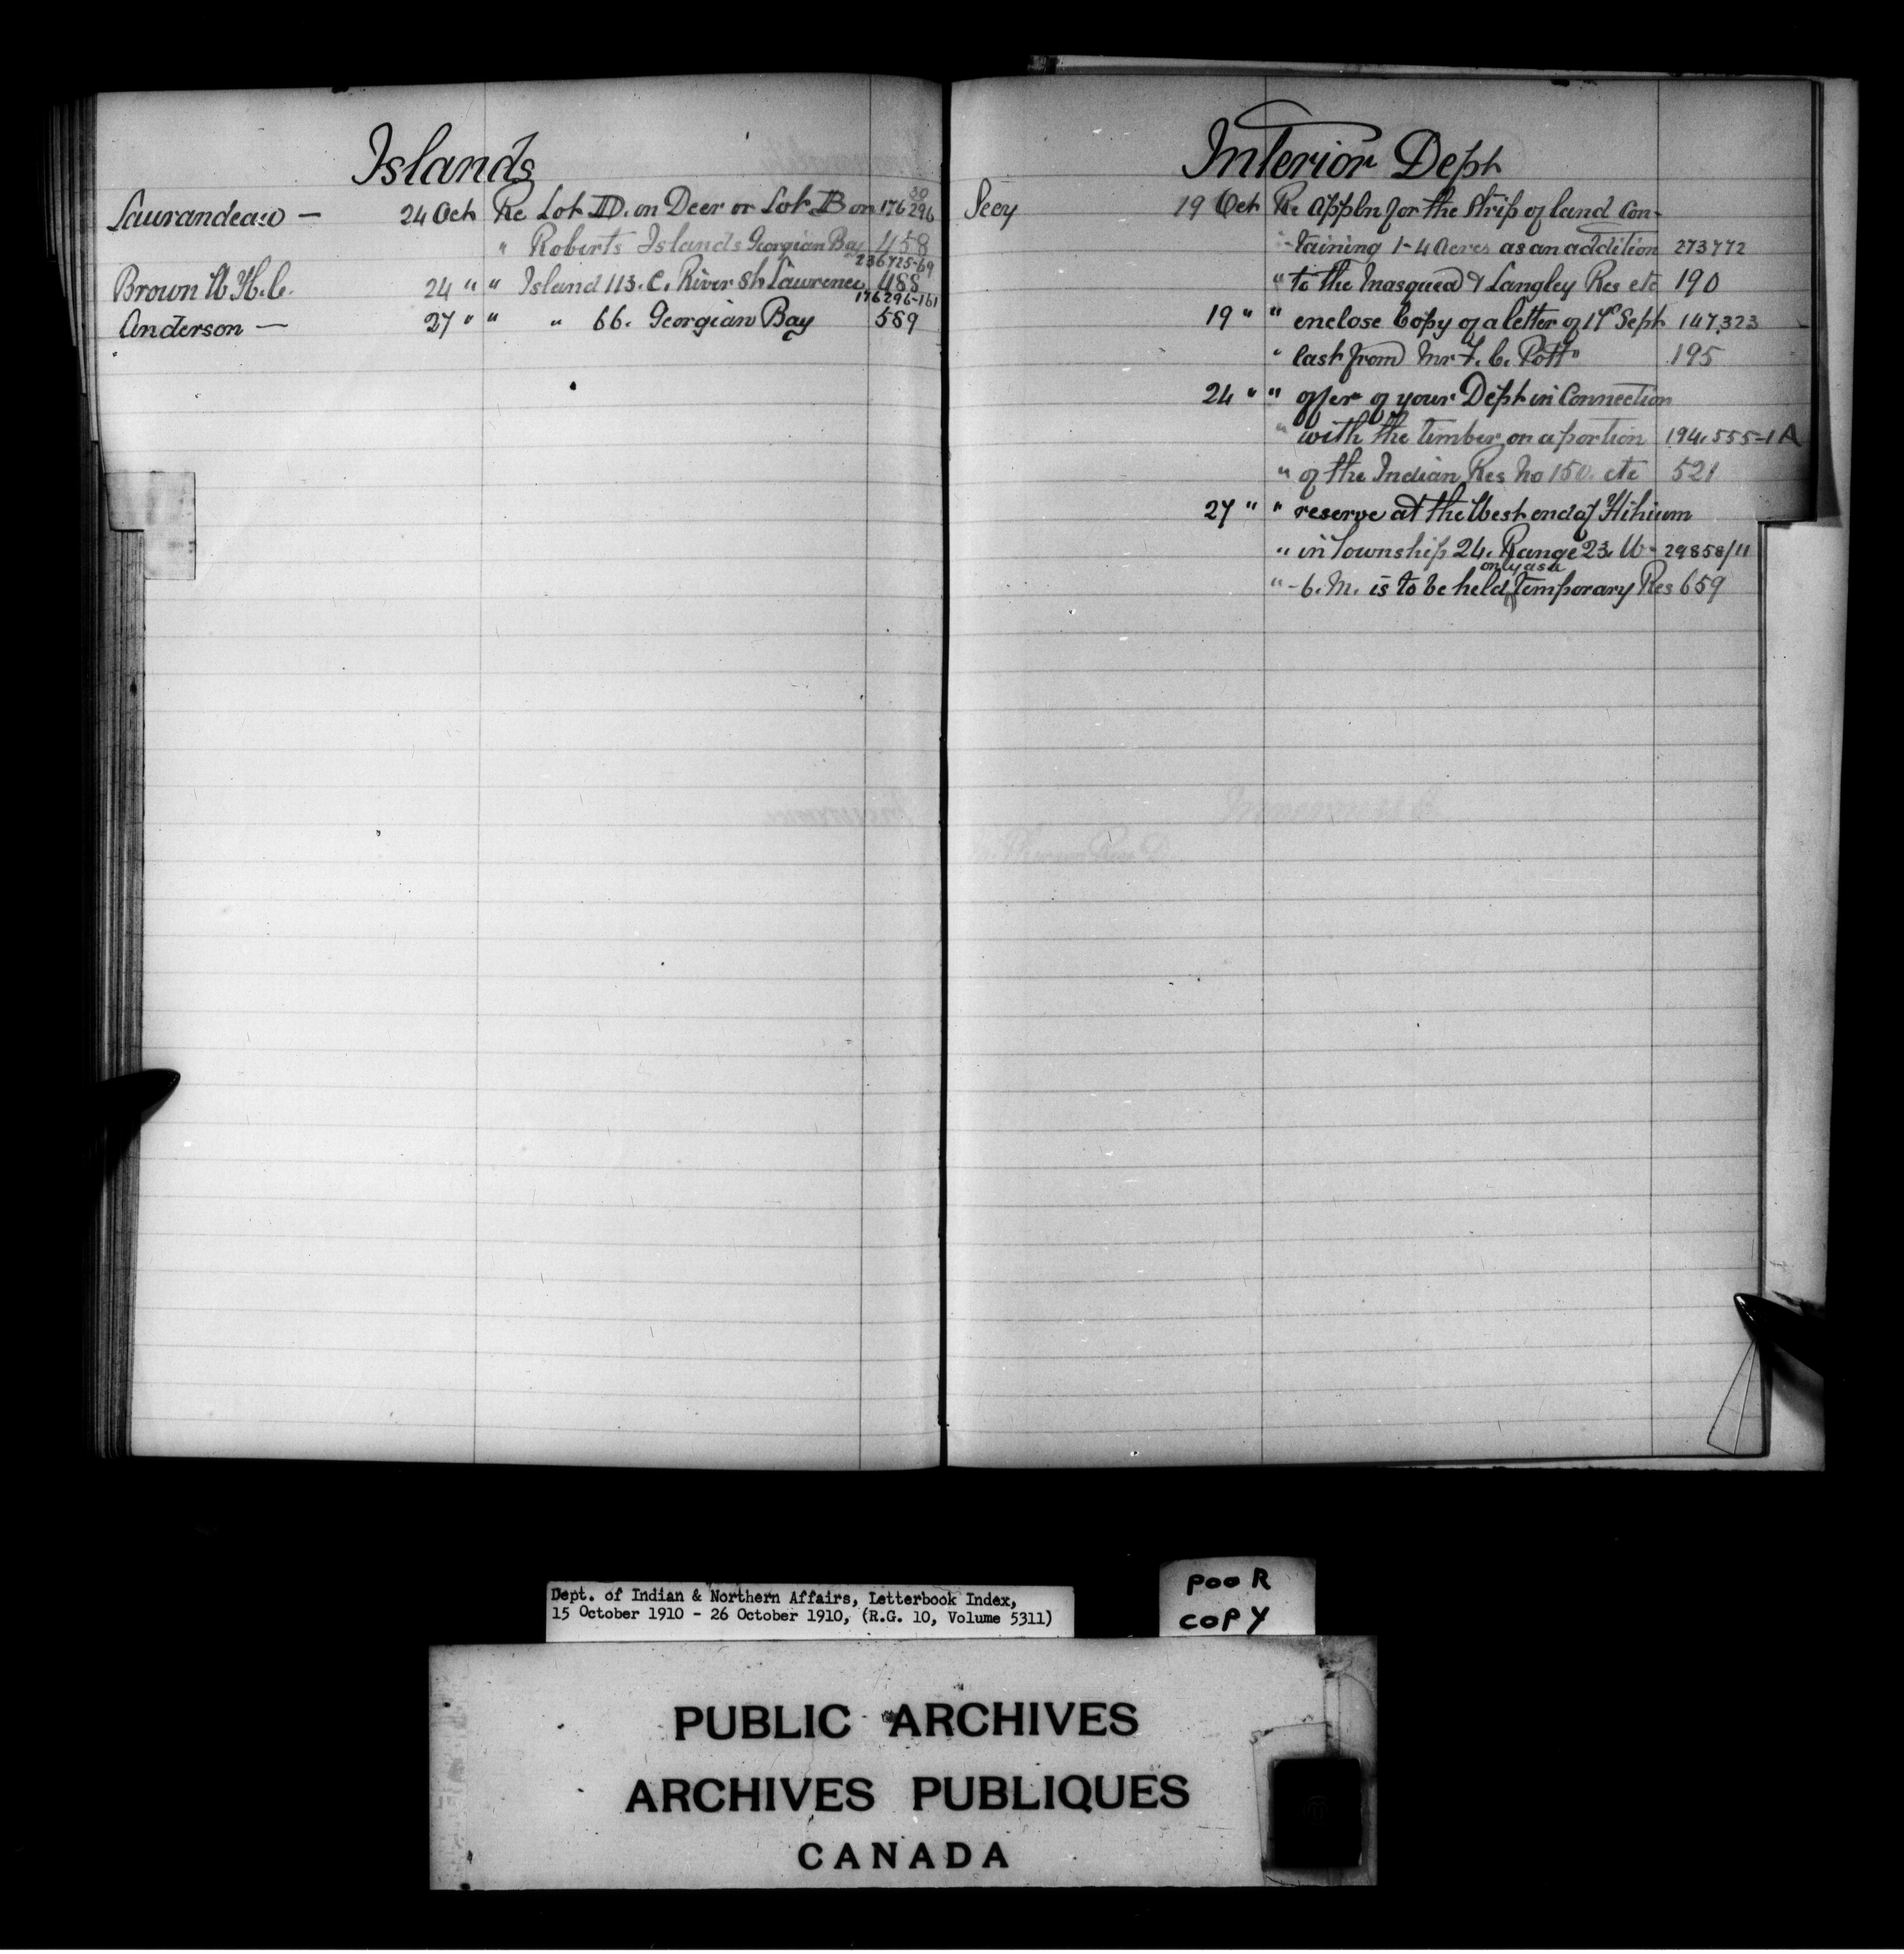 Islands
30
Laurandeau — 24 Oct Re Lot D. on Deer or Lot B on 176296
" Roberts Islands Georgian Bay 458
236725-69
Brown W. H. C. 24 " " Island 113. C. River St. Lawrence 488
176296-161
Anderson — 27 " " " 66. Georgian Bay 589
Interior Dept
Secy 19 Oct Re Appln for the strip of land con-
-taining 1-4 acres as an addition 273772
" to the & Langley Res etc 190
19 " " enclose Copy of a letter of Sept 147,323
" last from Mr F. C. Pott" 195
24 " " offer of your Dept in Connection
" with the timber on a portion 194,555-1A
" of the Indian Res No 150. etc 521
27 " " reserve at the West end of Hihium
" in Township 24. Range 23. W- 29858/11
only as a
" -6. M. is to be held temporary Res 659
Dept. of Indian & Northern Affairs, Letterbook Index,
15 October 1910 - 26 October 1910, (R.G. 10, Volume 5311)
POOR
COPY
PUBLIC ARCHIVES
ARCHIVES PUBLIQUES
CANADA